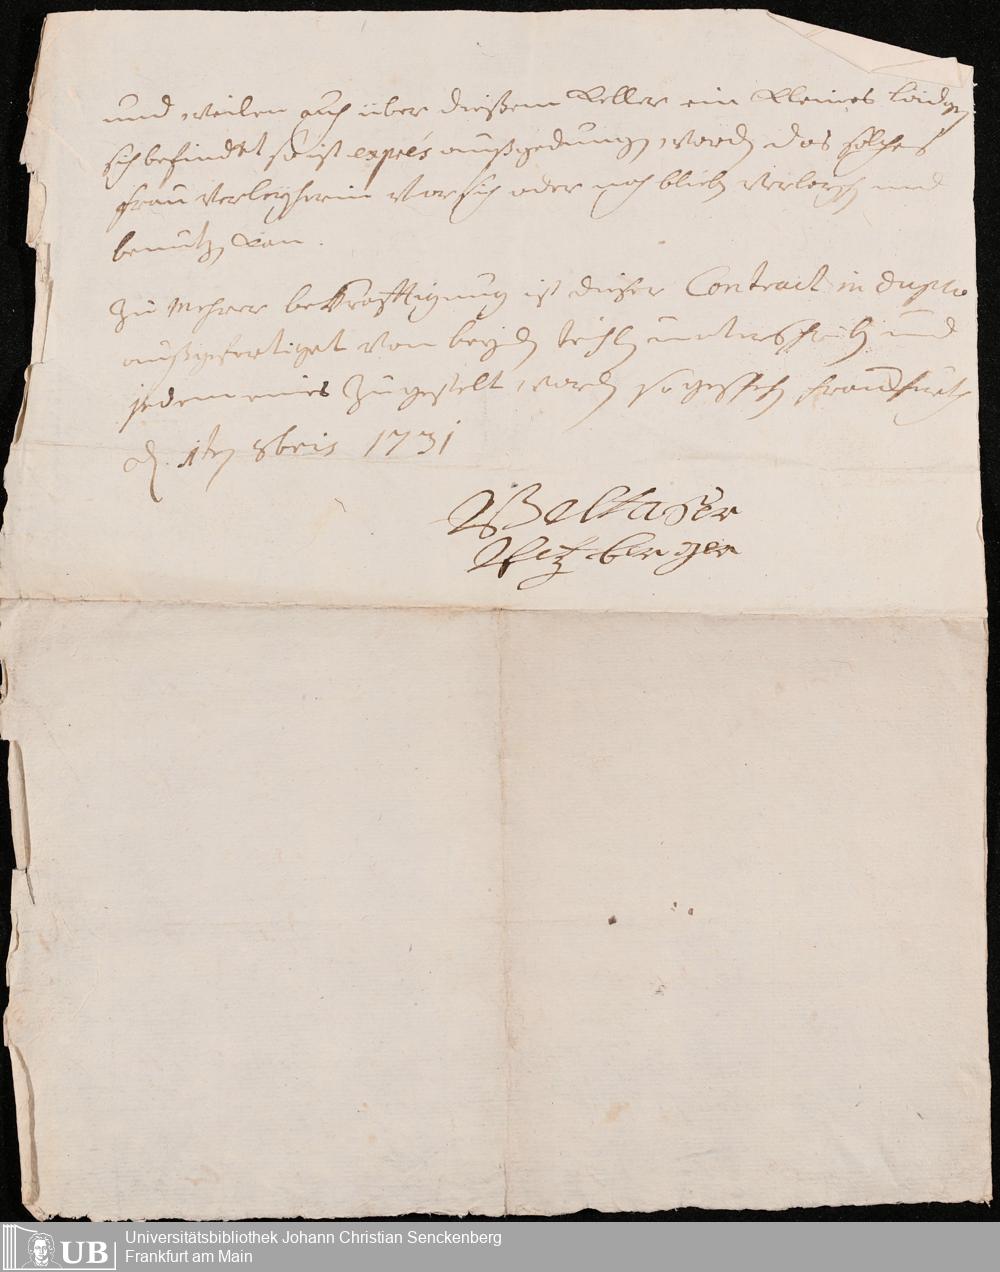 und weilen auch über dießem Keller ein Kleines Lädgen
sich befindtet so ist exprés außgedungen worden das solches
frau verleyherin vor sich oder noch verleyhen und
benutzen kan.
Zu Mehrer bekräfftigung ist dießer Contract in duplo
außgefertiget von beyden theilen unterschrieben und
jedem eines zugestelt worden so geschehen Franckfurth
d. 1ten 8bris 1731
Baltaser
Metzberger
UB
Universitätsbibliothek Johann Christian Senckenberg
Frankfurt am Main